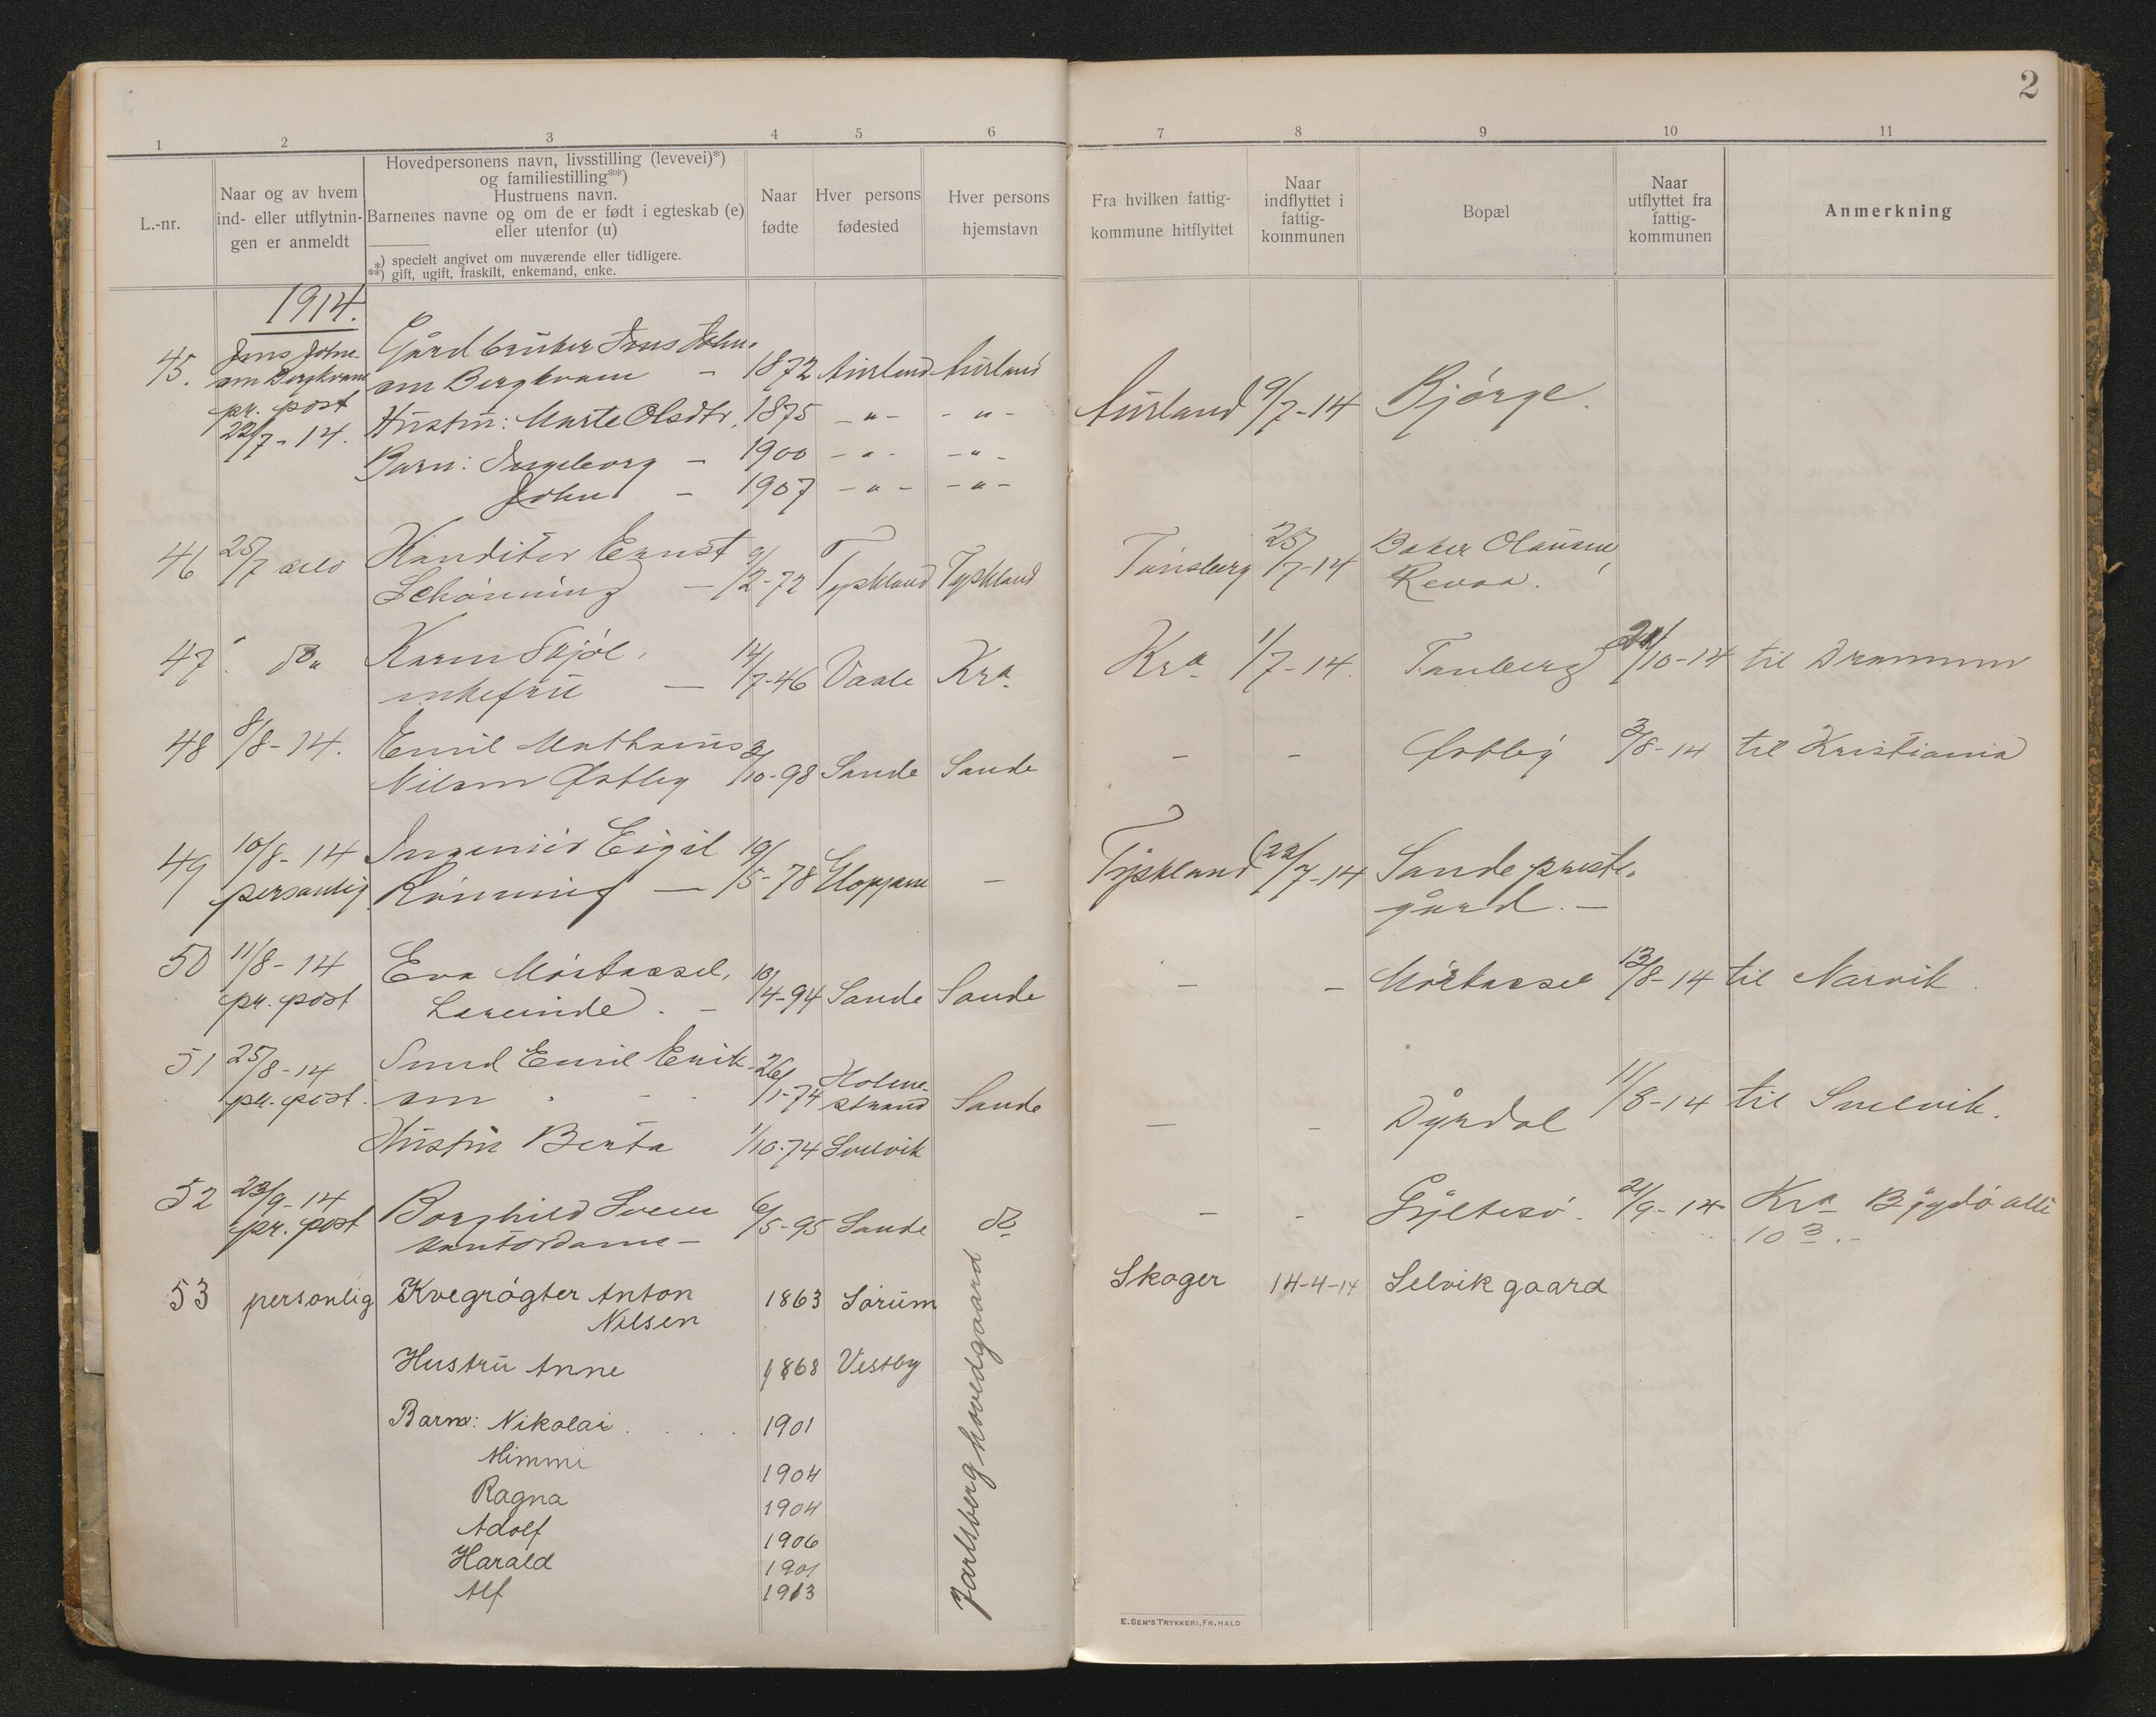 2
1 2 3 4 5 6 7 8 9 10 11
L.-nr.
Naar og av hvem
ind- eller utflytnin-
gen er anmeldt
Hovedpersonens navn, livsstilling (levevei)*)
og familiestilling**)
Hustruens navn.
Barnenes navne og om de er født i egteskab (e)
eller utenfor (u)
*) specielt angivet om nuværende eller tidligere.
**) gift, ugift, fraskilt, enkemand, enke.
Naar
fødte
Hver persons
fødested
Hver persons
hjemstavn
Fra hvilken fattig-
kommune hitflyttet
Naar
indflyttet i
fattig-
kommunen
Bopæl
Naar
utflyttet fra
fattig-
kommunen
Anmerkning
1914.
45. Jens Johne- Gårdbruker Jens Johne-
sen Bergkvam sen Bergkvam - 1872 Aurland Aurland Aurland 9/7-14 Bjørge.
pr. post Hustru: Marte Olsdtr. 1875 -"- -"-
22/7-14. Barn: Ingeborg - 1900 -"- -"-
John - 1907 -"- -"-
46 25/7 selv Konditor Ernst 9/2-72 Tyskland Tyskland Tønsberg 25/7-14 Baker Olausen,
Schønning - Revaa.
47. do Karen Skjøl, 14/7-46 Vaale Kra. Kra. 1/7-14. Tanberg 24/10-14 til Drammen
enkefru -
48 8/8-14. Emil Mathæus 2/10-98 Sande Sande - - Østby 3/8-14 til Kristiania
Nilsen Østby
49 10/8-14 Ingeniør Eigil 19/5-78 Gloppen - Tyskland 22/7-14 Sande preste-
personlig Rønning - gård. -
50 11/8-14 Eva Mørtassel, 10/4-94 Sande Sande - - Mørtassel 13/8-14 til Narvik.
pr. post Lærerinde. -
51 25/8-14 Smed Emil Erik- 26/1-74 Holme-
pr. post. sen strand Sande - - Dyrdal 11/8-14 til Svelvik.
Hustru Berta 1/10-74 Svelvik
52 23/9-14 Borghild Sveen 6/5-95 Sande do - - Gyltesø. 21/9-14 Kra Bygdø allé
pr. post kontordame - 10 3.-
53 personlig Kvegrøgter Anton 1863 Sørum Skoger 14-4-14 Selvik gaard
Nilsen
Hustru Anne 1868 Vestby
Jarlsberg hovedgaard
Barn: Nikolai. . . . 1901
Mimmi 1904
Ragna 1904
Adolf 1906
Harald 1901
Alf 1913
E. SEM'S TRYKKERI, FR.HALD